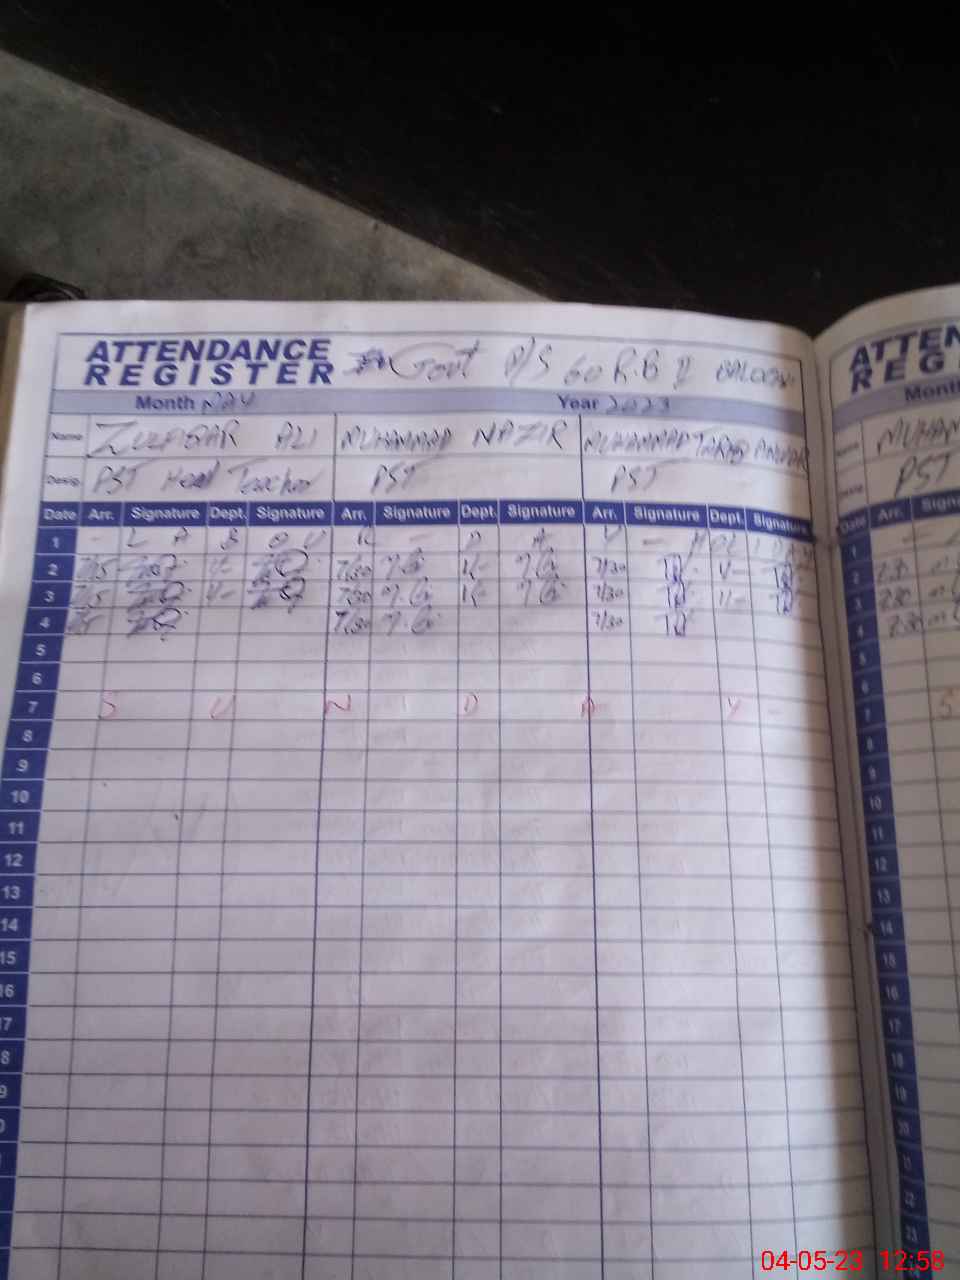 ATTENDANCE REGISTER Govt P/S 60 R.B II
Month MAY Year 2023
Name ZULFIQAR ALI MUHAMMAD NAZIR MUHAMMAD TARIQ ANWAR
Desig. PST Head Teacher PST PST
Date Arr. Signature Dept. Signature Arr. Signature Dept. Signature Arr. Signature Dept. Signature
1 - L A B O U R - D A Y - HOLIDAY
2 7/15 7,30 7/30
3 7/15 7,30 7/30
4 7,30 7/30
5
6
7 S U N D A Y -
8
9
10
11
12
13
14
15
16
17
18
19
ATTEN
REG
Month
Name MUHAM
Desig. PST
Date Arr. Sign
1
2 7.30
3 7.30
4 7.30
5
6
7 S
8
9
10
11
12
13
14
15
16
17
18
19
20
21
22
23
04-05-23 12:58